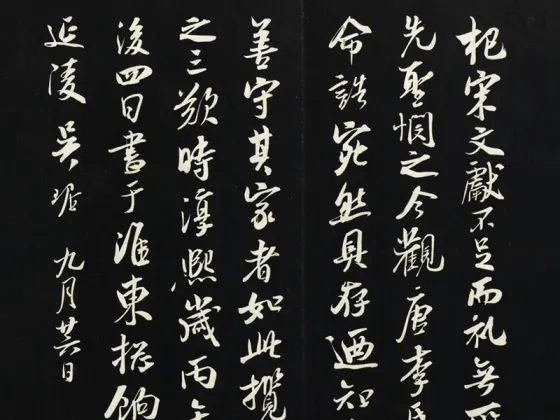 杞宋文獻不足而礼無所
先聖惘之今觀唐李氏
命誥宛然具存迺知
善守其家者如此攬
之三歎時淳熙歲丙午
後四日書于淮東揔餉
延陵吴琚 九月廿六日